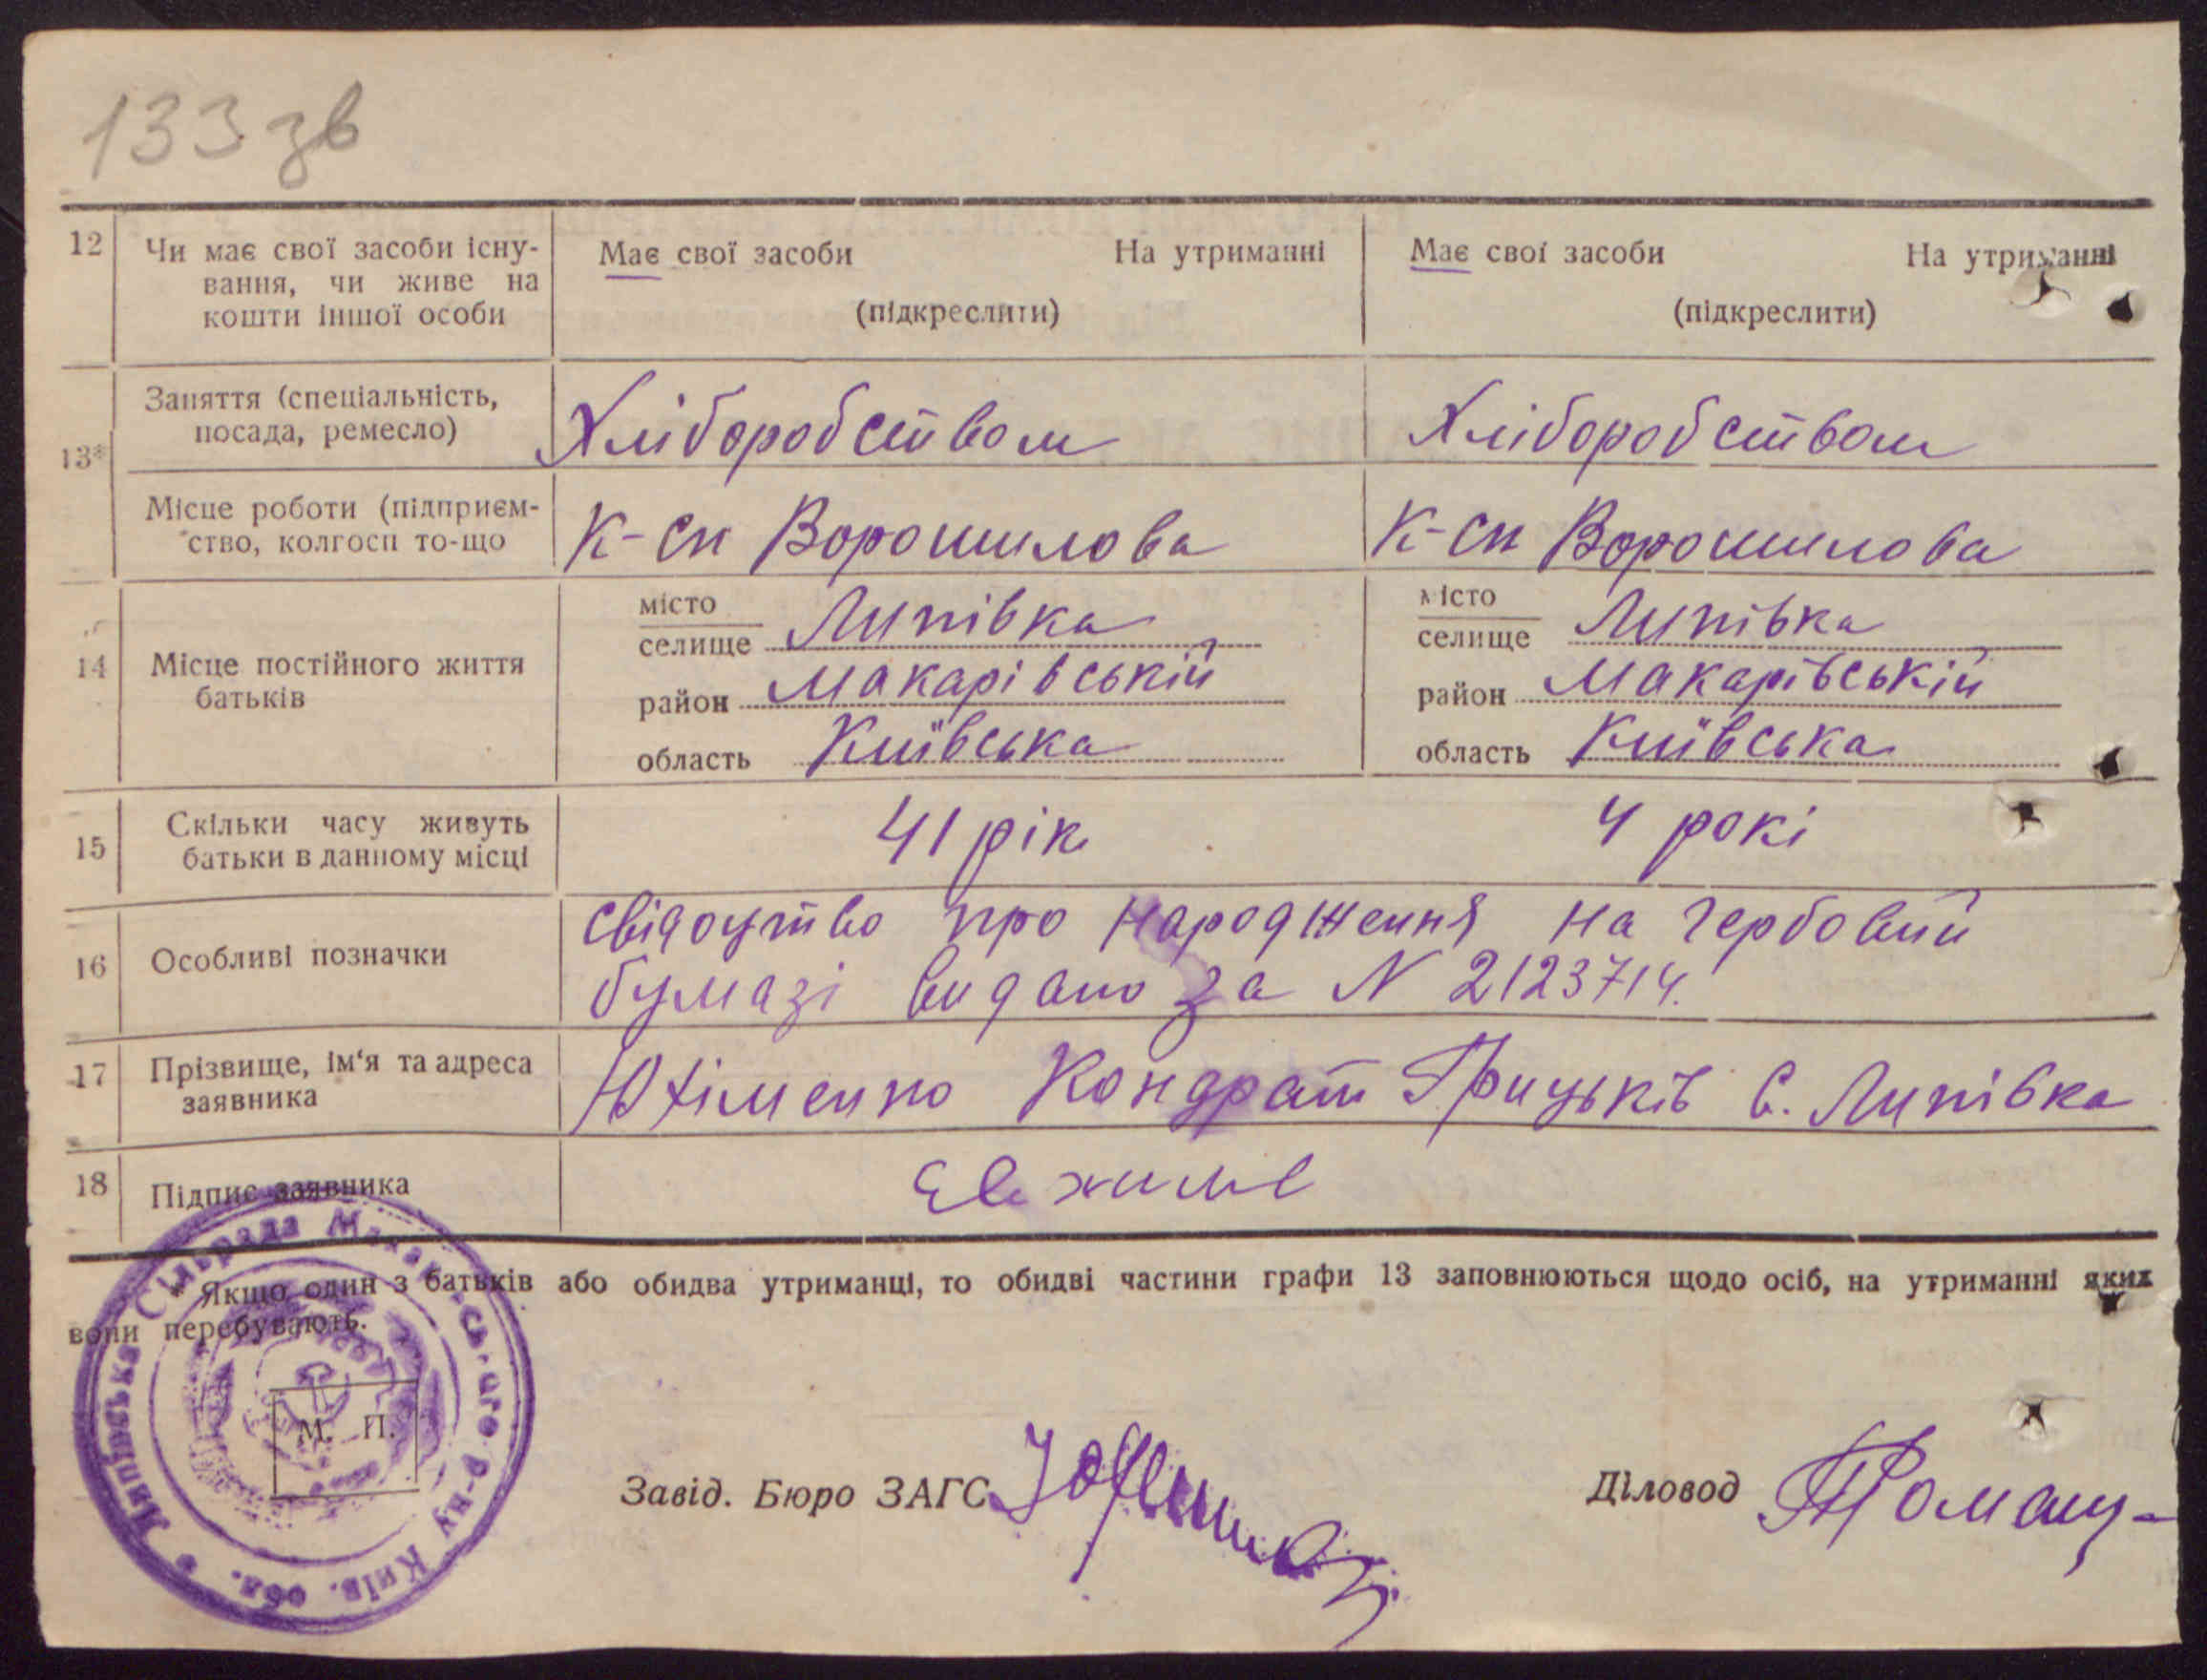 133 зв
12 Чи має свої засоби існу-
вання, чи живе на
кошти іншої особи
Має свої засоби На утриманні
(підкреслити)
Має свої засоби На утриманні
(підкреслити)
13*
Заняття (спеціальність,
посада, ремесло)
Хліборобством
Хліборобством
Місце роботи (підприєм-
ство, колгосп то-що
К-сп Ворошилова
К-сп Ворошилова
14 Місце постійного життя
батьків
місто
селище Липівка
район Макарівській
область Київська
місто
селище Липівка
район Макарівській
область Київська
15 Скільки часу живуть
батьки в данному місці
41 рік
4 рокі
16 Особливі позначки
свідоцтво про народження на гербовий
бумазі видано за N 2123714.
17 Прізвище, ім'я та адреса
заявника
Юхіменко Кондрат Грицьків с. Липівка
18 Підпис заявника
* Якщо один з батьків або обидва утриманці, то обидві частини графи 13 заповнюються щодо осіб, на утриманні яких
вони перебувають.
Липівська Сільрада Макарівського р-ну Київ. обл.
М. П.
Завід. Бюро ЗАГС
Діловод